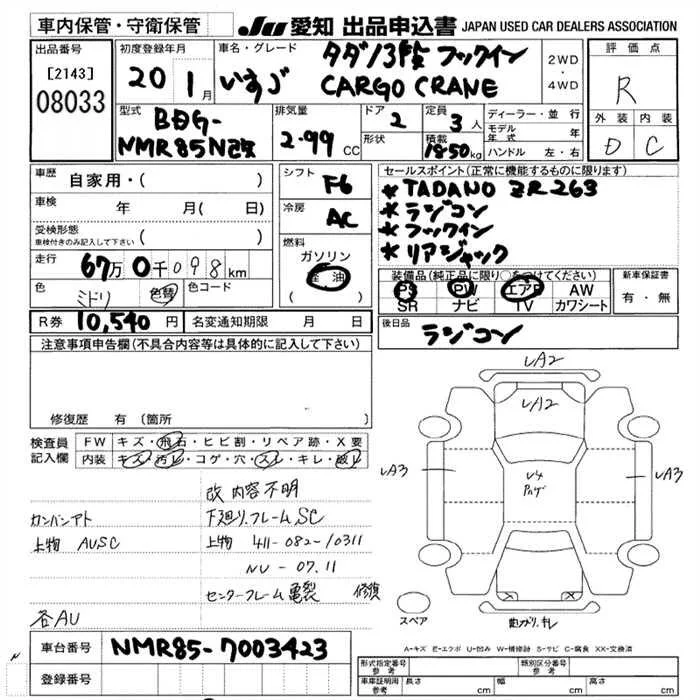 車内保管・守衛保管
JU 愛知 出品申込書 JAPAN USED CAR DEALERS ASSOCIATION
出品番号
[2143]
08033
初度登録年月
20 1月
車名・グレード
いすゞ
タダノ3段 フックイン
CARGO CRANE
2WD
・
4WD
評価点
R
外装 内装
D C
型式
BDG-
NMR85N改
排気量
2.99 CC
ドア
2
形状
定員
3人
積載
1850kg
ディーラー・並行
モデル年式 年
ハンドル 左・右
車歴
自家用・( )
車検 年 月( 日)
受検形態
車検付きのみ記入して下さい ( )
走行
67万 0千098km
色
ミドリ
色替
色コード
R券 10,540円
名変通知期限 月 日
シフト
F6
冷房
AC
燃料
ガソリン
軽油
( )
セールスポイント(正常に機能するものに限ります)
*TADANO ZR263
*ラジコン
*フックイン
*リアジャック
装備品(純正品に限り○をつけてください)
PS PW エアB AW
SR ナビ TV カワシート
新車保証書
有・無
後日品
ラジコン
注意事項申告欄(不具合内容等は具体的に記入して下さい)
修復歴 有 (箇所 )
検査員
記入欄
FW キズ・飛石・ヒビ割・リペア跡・X要
内装 キズ・汚レ・コゲ・穴・スレ・キレ・破レ
改 内容不明
カンバンアト
下廻り.フレームSC
上物 AUSC
上物 411-082-10311
NU-07.11
センターフレーム亀裂 修復
各AU
UA2
UA2
UA3
U4
UA3
スペア
A-キズ E-エクボ U-凹み W-補修跡 S-サビ C-腐食 XX-交換済
車台番号 NMR85-7003423
登録番号
形式指定番号
参考
類別区分番号
参考
車庫証明用
参考
長さ cm 幅 cm 高さ cm